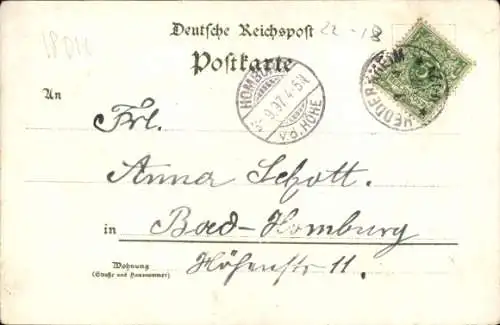 18 Dll
22 - 18
Deutsche Reichspost
Postkarte
HOMBURG
9.97.4-5N
v.d. HÖHE
HEDDERNHEIM
An
Frl.
Anna Schott.
in Bad-Homburg
Wohnung
(Straße und Hausnummer)
Höhenstr. 11.